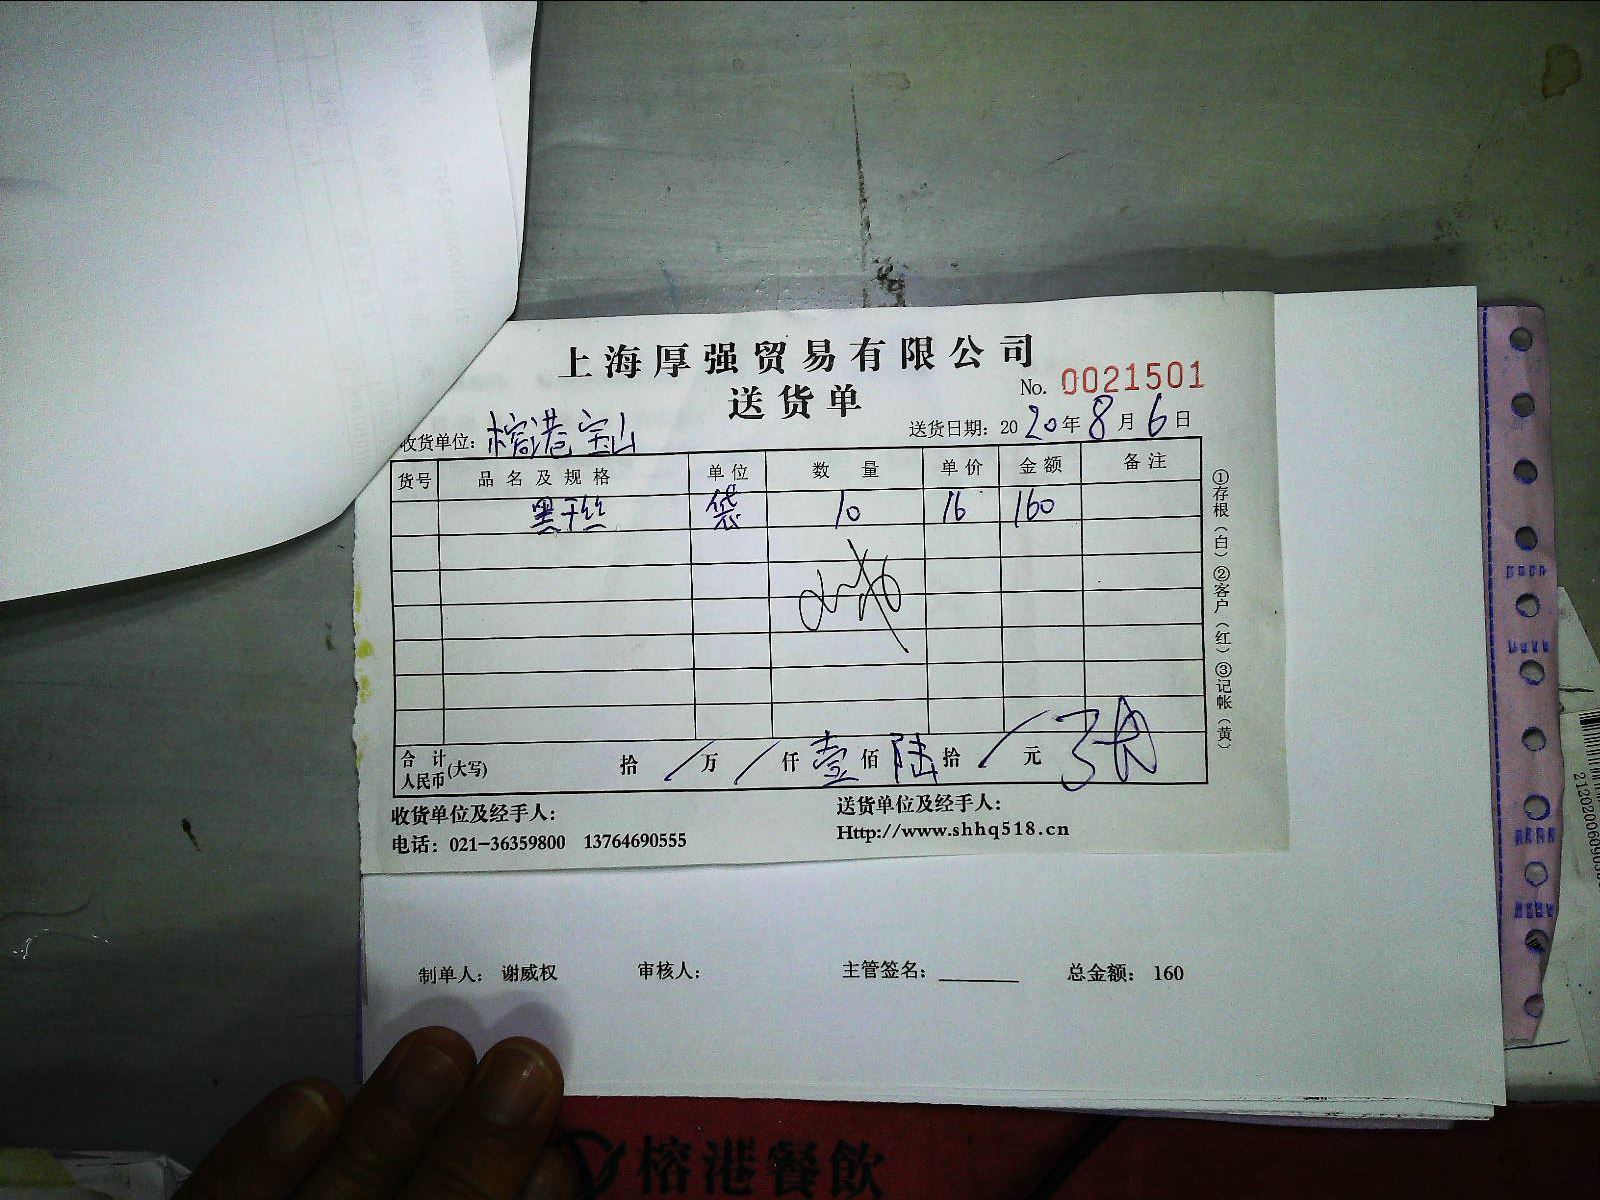 上海厚强贸易有限公司
送货单
No. 0021501
收货单位: 榕港宝山
送货日期: 2020年8月6日
货号 品名及规格 单位 数量 单价 金额 备注
黑干丝 袋 10 16 160
合计人民币(大写) 拾 / 万 / 仟 壹 佰 陆 拾 / 元
收货单位及经手人:
送货单位及经手人:
电话: 021-36359800 13764690555
Http://www.shhq518.cn
①存根(白) ②客户(红) ③记帐(黄)
制单人: 谢威权 审核人: 主管签名: ______ 总金额: 160
榕港餐飲